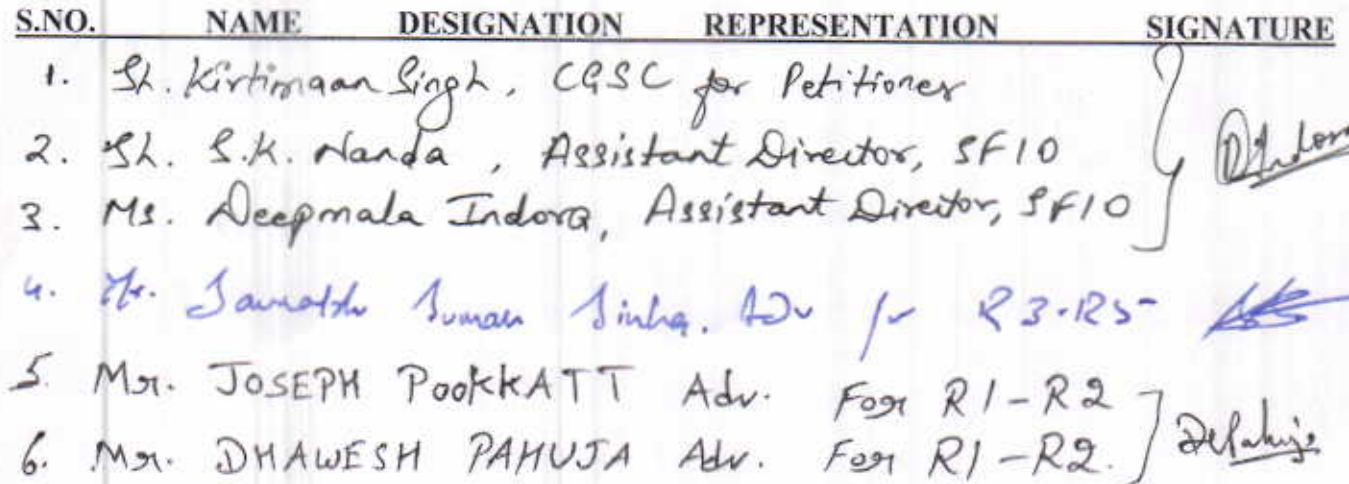 S.NO. NAME DESIGNATION REPRESENTATION SIGNATURE
1. Sh. Kirtimaan Singh, CGSC for Petitioner
2. Sh. S.K. Nanda, Assistant Director, SFIO
3. Ms. Deepmala Indora, Assistant Director, SFIO
4. Mr. Suman Sinha. Adv for R3-R5
5. Mr. JOSEPH PooKKATT Adv. For R1-R2
6. Mr. DHAWESH PAHUJA Adv. For R1-R2.